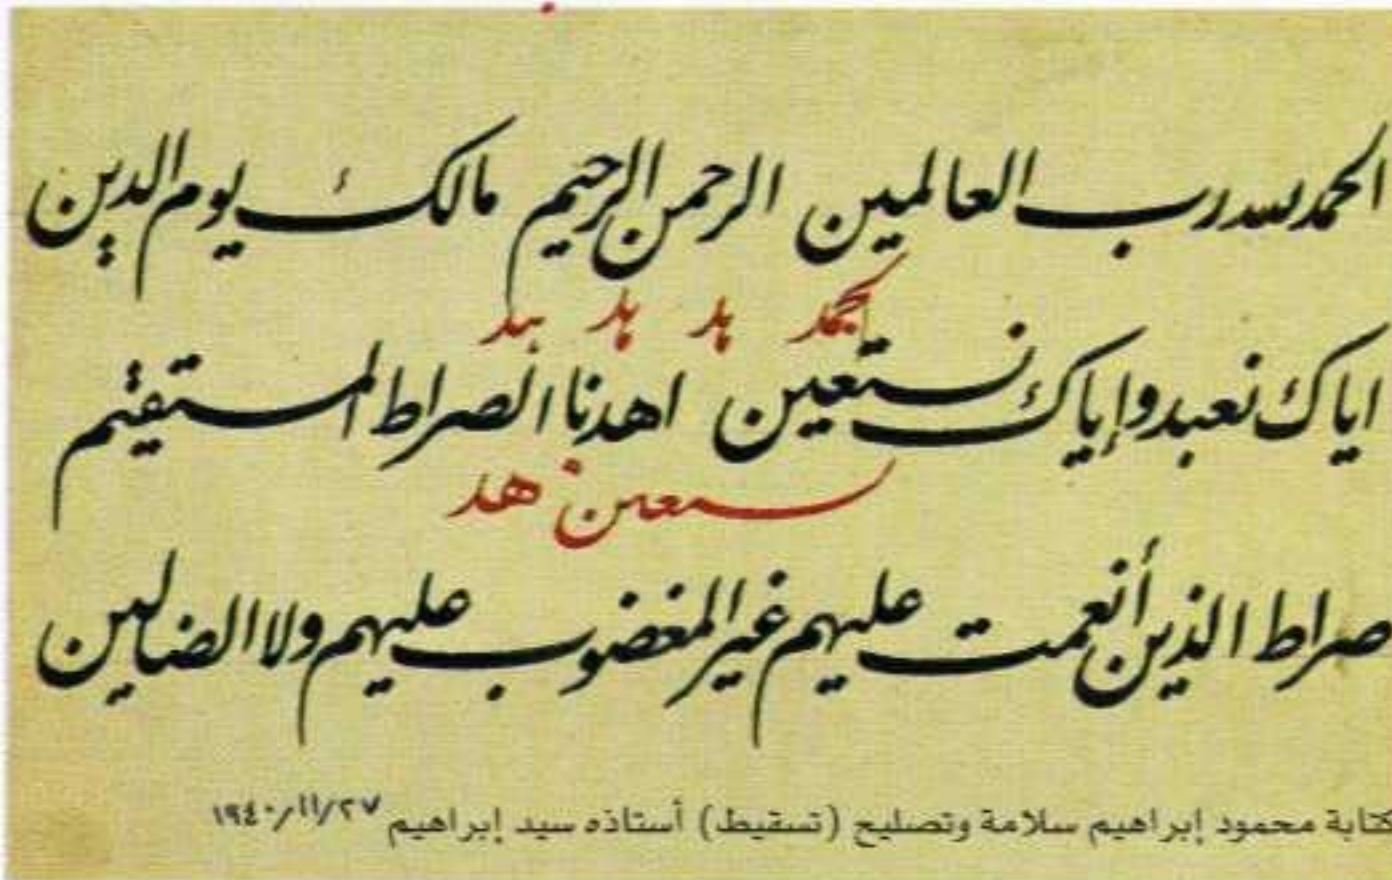 الحمد لله رب العالمين الرحمن الرحيم مالك يوم الدين
حمد هد هد هد
اياك نعبد وإياك نستعين اهدنا الصراط المستقيم
ستعين هد
صراط الذين أنعمت عليهم غير المغضوب عليهم ولا الضالين
كتابة محمود إبراهيم سلامة وتصليح (تسقيط) أستاذه سيد إبراهيم ١٩٤٠/١١/٢٧